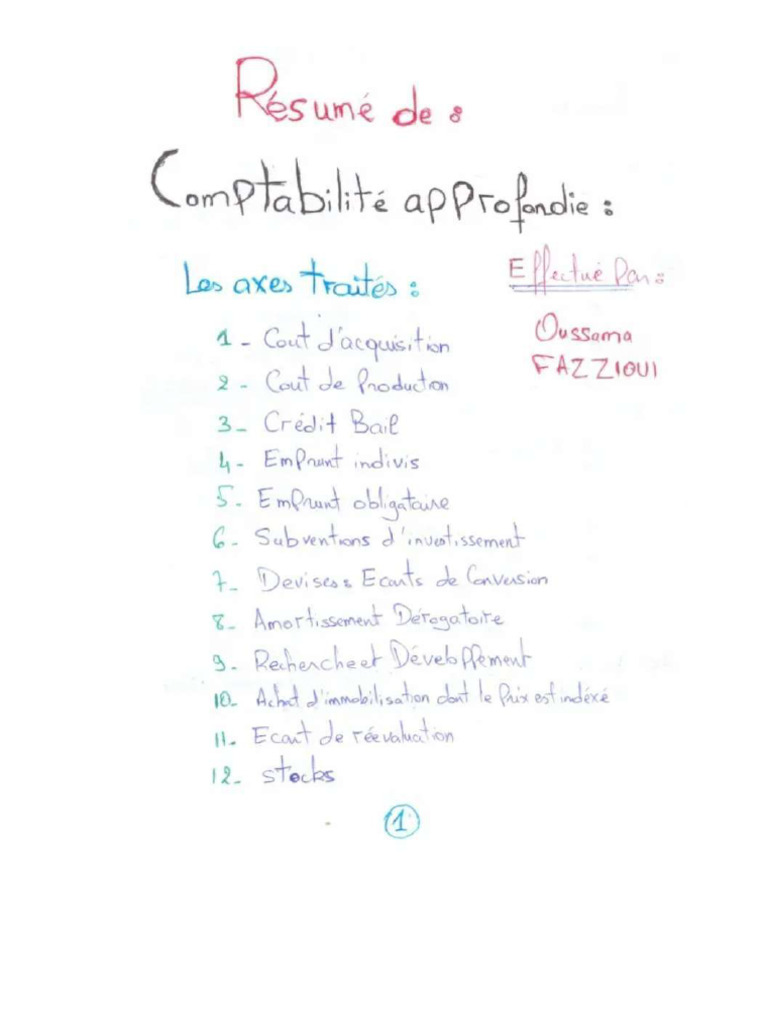 Résumé de :
Comptabilité approfondie :
Les axes traités :
Effectué Par :
Oussama
FAZZIOUI
1 - Cout d'acquisition
2 - Cout de Production
3 - Crédit Bail
4 - Emprunt indivis
5 - Emprunt obligataire
6 - Subventions d'investissement
7 - Devises : Ecarts de Conversion
8 - Amortissement Dérogatoire
9 - Recherche et Développement
10 - Achat d'immobilisation dont le Prix est indéxé
11 - Ecart de réevaluation
12 - Stocks
1